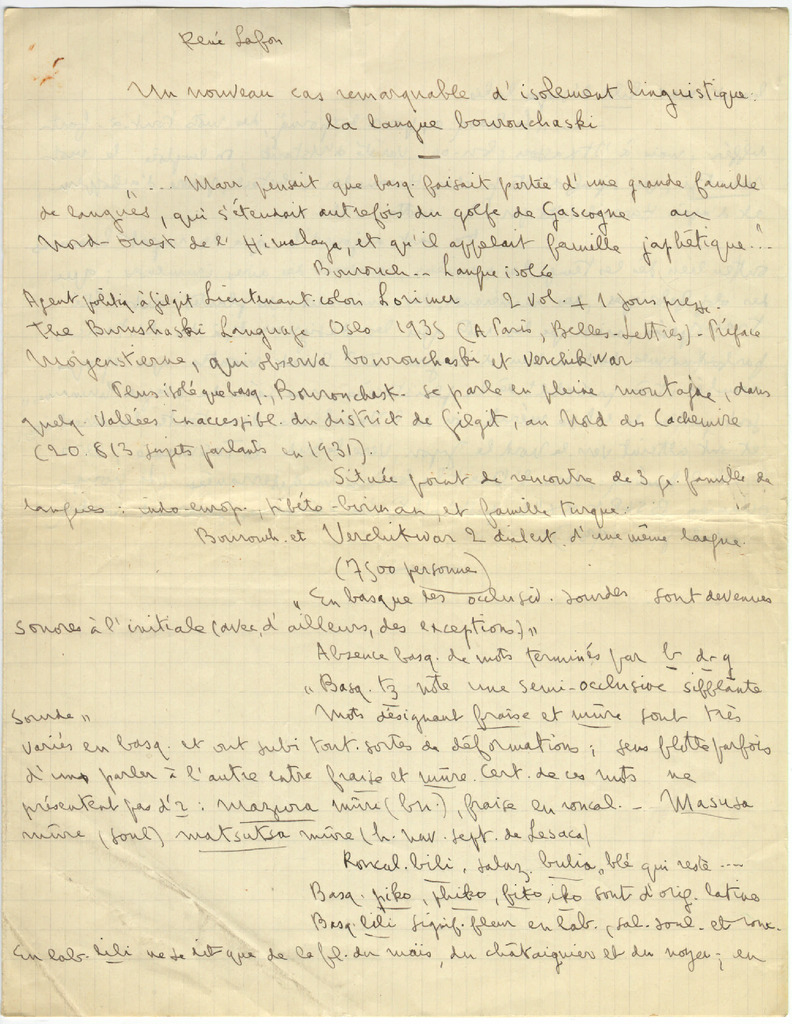 René Lafon
Un nouveau cas remarquable d'isolement linguistique:
la langue bourouchaski
—
"... Marr pensait que basq. faisait partie d'une grande famille
de langues, qui s'étendait autrefois du golfe de Gascogne au
Nord-Ouest de l'Himalaya, et qu'il appelait famille japhétique..."
Bourouch... Langue isolée
Agent politiq. à Gilgit Lieutenant-colon Lorimer 2 vol. + 1 sous presse.
The Burushaski Language Oslo 1935 (A Paris, Belles-Lettres) - Préface
Morgenstierne, qui observa bourouchaski et Verchikwar
Plus isolé que basq., Bourouchask. se parle en pleine montagne, dans
quelq. vallées inaccessibl. du district de Gilgit, au Nord du Cachemire
(20.813 sujets parlants en 1931).
Située point de rencontre de 3 gr. famille de
langues: indo-europ., tibéto-birman, et famille turque.
Bourouch. et Verchikwar 2 dialect. d'une même langue.
(7500 personnes)
"En basque les occlusiv. sourdes sont devenues
sonores à l'initiale (avec, d'ailleurs, des exceptions)"
Absence basq. de mots terminés par b d g
"Basq. tz note une semi-occlusive sifflante
sourde" Mots désignant fraise et mûre sont très
variés en basq. et ont subi tout. sortes de déformations; sens flotte parfois
d'un parler à l'autre entre fraise et mûre. Cert. de ces mots ne
présentent pas d'r: mazura mûre (bn.), fraise en roncal. - Masusa
mûre (soul) matsutsa mûre (h. nav. sept. de Lesaca)
Roncal. bili, salaz. bulia, blé qui reste ...
Basq. piko, phiko, fiko, iko sont d'orig. latine
Basq. lili signif. fleur en lab., sal. soul. et ronc.
En lab. lili ne se dit que de la fl. du maïs, du châtaignier et du noyer; en